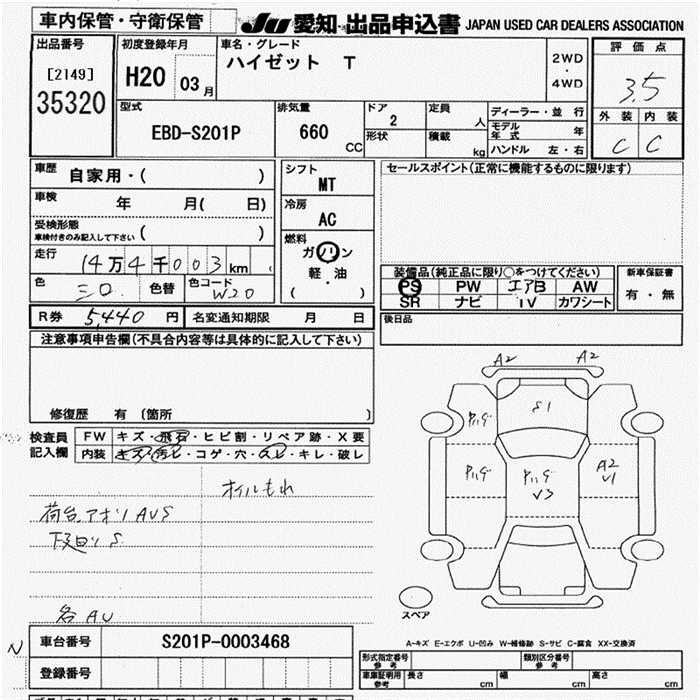 車内保管・守衛保管
JU 愛知 出品申込書 JAPAN USED CAR DEALERS ASSOCIATION
出品番号
[2149]
35320
初度登録年月
H20 03 月
車名・グレード
ハイゼット T
2WD
・
4WD
評価点
3.5
外装 内装
C C
型式
EBD-S201P
排気量
660 CC
ドア
2
形状
定員 人
積載 kg
ディーラー・並行
モデル年式 年
ハンドル 左・右
車歴 自家用・( )
車検 年 月( 日)
受検形態
車検付きのみ記入して下さい ( )
走行 14万4千003km
色 シロ 色替 色コード W20
シフト
MT
冷房
AC
燃料
ガソリン
・
軽・油
( )
セールスポイント(正常に機能するものに限ります)
装備品(純正品に限り○をつけてください)
PS PW エアB AW
SR ナビ TV カワシート
新車保証書
有・無
R券 5,440 円 名変通知期限 月 日
後日品
注意事項申告欄(不具合内容等は具体的に記入して下さい)
修復歴 有 (箇所 )
検査員
記入欄
FW キズ・飛石・ヒビ割・リペア跡・X要
内装 キズ・汚レ・コゲ・穴・スレ・キレ・破レ
オイルもれ
荷台アオリ AUS
下廻り S
各AU
A2 A2
S1
ハルゲ
ハルゲ
ハルゲ
V3
A2
V1
スペア
A-キズ E-エクボ U-凹み W-補修跡 S-サビ C-腐食 XX-交換済
N
車台番号 S201P-0003468
登録番号
形式指定番号
参考
類別区分番号
参考
車庫証明用
参考
長さ cm 幅 cm 高さ cm